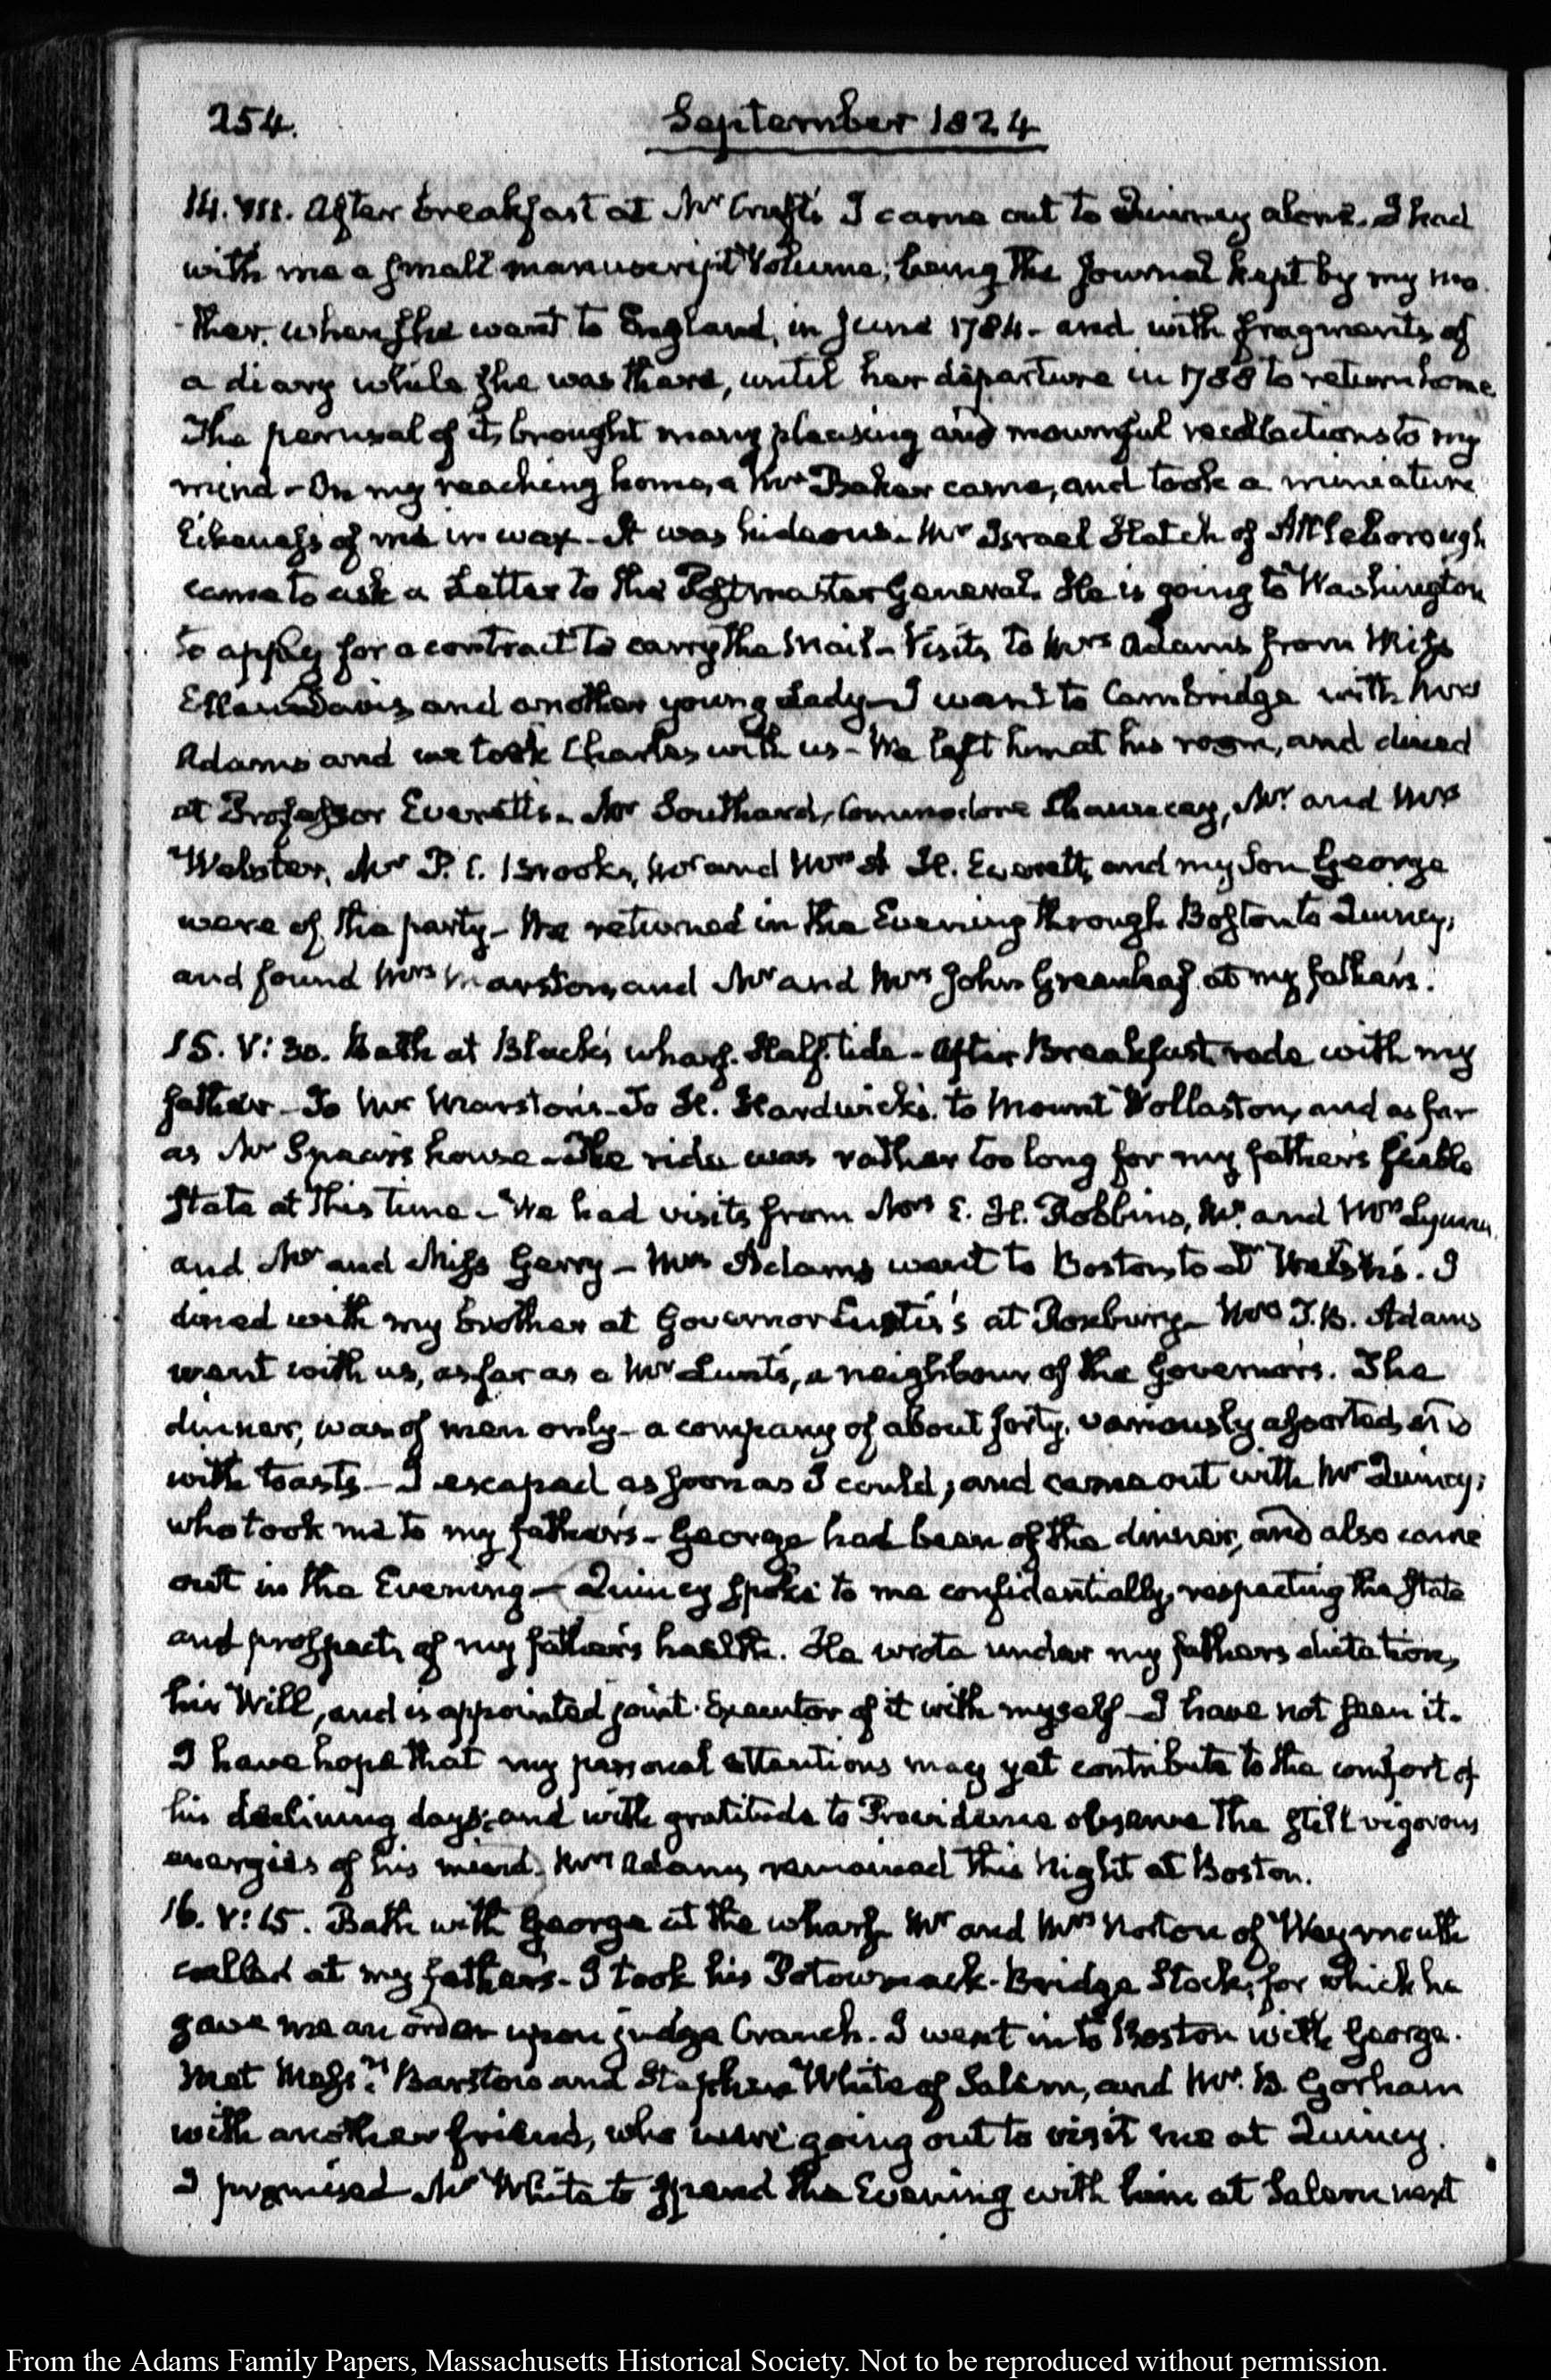 254.
September 1824
14. VII. After breakfast at Mr Cruft's I came out to Quincy alone. I had
with me a small manuscript Volume, being the Journal kept by my mo-
-ther, when she went to England, in June 1784 - and with fragments of
a diary while she was there, until her departure in 1788 to return home.
The perusal of it, brought many pleasing and mournful recollections to my
mind - On my reaching home, a Mr Baker came, and took a miniature
likeness of me in wax - It was hideous. Mr Israel Hatch of Attleborough
came to ask a Letter to the Postmaster General. He is going to Washington
to apply for a contract to carry the Mail - Visits to Mrs Adams from Miss
Ellen Davis, and another young Lady - I went to Cambridge with Mrs
Adams and we took Charles with us - We left him at his room, and dined
at Professor Everett's. Mr Southard, Commodore Chauncey, Mr and Mrs
Webster, Mr P. C. Brooks, Mr and Mrs A. H. Everett, and my Son George
were of the party - We returned in the Evening through Boston to Quincy,
and found Mrs Marston, and Mr and Mrs John Greenleaf at my father's.
15. V: 30. Bath at Black's wharf. Half tide - After Breakfast rode with my
father - To Mr Marston's - To H. Hardwick's. to Mount Wollaston, and as far
as Mr Spear's house - The ride was rather too long for my father's feeble
State at this time - We had visits from Mrs E. H. Robbins, Mr. and Mrs Lyman
and Mr and Miss Gerry - Mrs Adams went to Boston, to Dr Welsh's. I
dined with my brother at Governor Eustis's at Roxbury - Mrs T. B. Adams
went with us, as far as a Mr Lunt's, a neighbour of the Governor's. The
dinner, was of men only - a company of about forty, variously assorted,
with toasts - I escaped as soon as I could; and came out with Mr Quincy;
who took me to my father's - George had been of the dinner, and also came
out in the Evening - Quincy spoke to me confidentially, respecting the State
and prospects of my father's health. He wrote under my fathers dictation,
his Will, and is appointed joint Executor of it with myself - I have not seen it.
I have hope that my personal attentions may yet contribute to the comfort of
his declining days; and with gratitude to Providence observe the still vigorous
energies of his mind. Mrs Adams, remained this Night at Boston.
16. V: 15. Bath with George at the wharf. Mr and Mrs Norton of Weymouth
called at my father's - I took his Potowmack-Bridge Stock, for which he
gave me an order upon judge Cranch. I went into Boston with George.
Met Messrs. Barstow and Stephen White of Salem, and Mr. B. Gorham
with another friend, who were going out to visit me at Quincy.
I promised Mr White to spend the Evening with him at Salem next
From the Adams Family Papers, Massachusetts Historical Society. Not to be reproduced without permission.